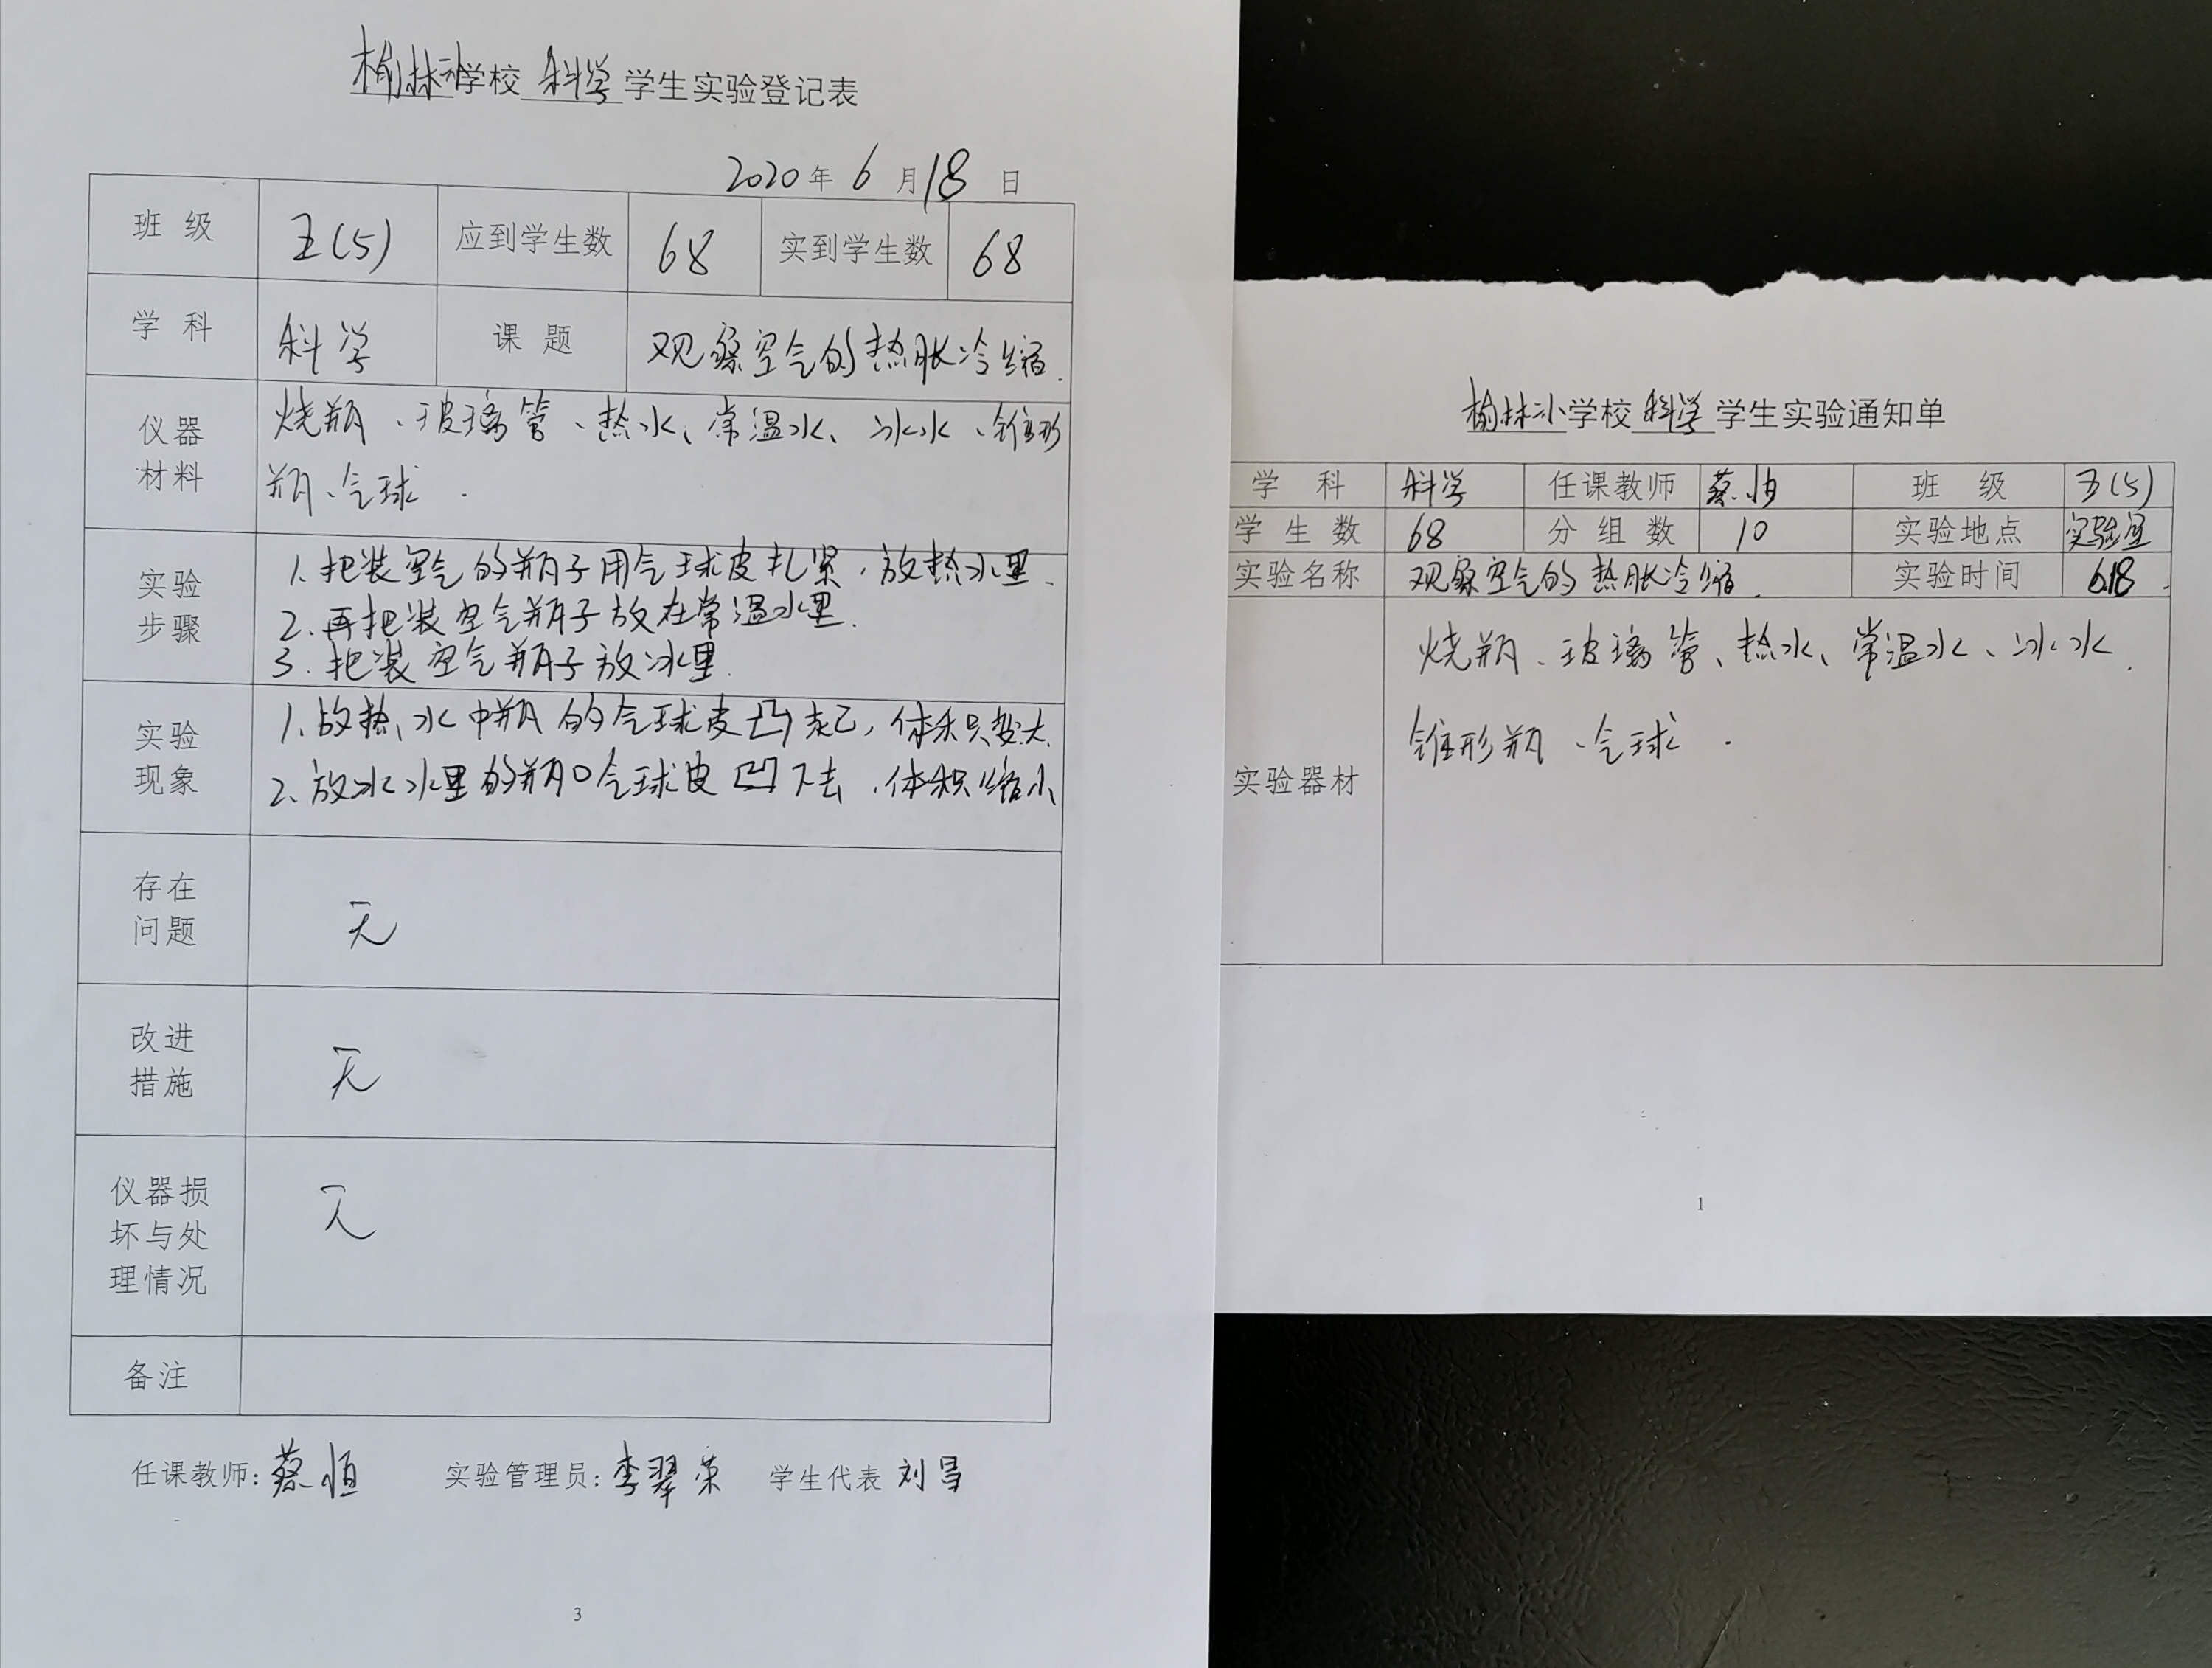 榆林小学校 科学 学生实验登记表
2020年 6 月 18 日
班级 五(5) 应到学生数 68 实到学生数 68
学科 科学 课题 观察空气的热胀冷缩.
仪器
材料
烧瓶、玻璃管、热水、常温水、冰水、锥形
瓶、气球.
实验
步骤
1.把装空气的瓶子用气球皮扎紧,放热水里.
2.再把装空气瓶子放在常温水里.
3.把装空气瓶子放冰里.
实验
现象
1.放热水中瓶的气球皮凸起,体积变大.
2.放冰水里的瓶口气球皮凹下去,体积缩小
存在
问题
无
改进
措施
无
仪器损
坏与处
理情况
无
备注
任课教师:蔡恒 实验管理员:李翠荣 学生代表 刘
3
榆林小学校 科学 学生实验通知单
学科 科学 任课教师 蔡恒 班级 五(5)
学生数 68 分组数 10 实验地点 实验室
实验名称 观察空气的热胀冷缩. 实验时间 6.18.
实验器材
烧瓶、玻璃管、热水、常温水、冰水.
锥形瓶、气球.
1